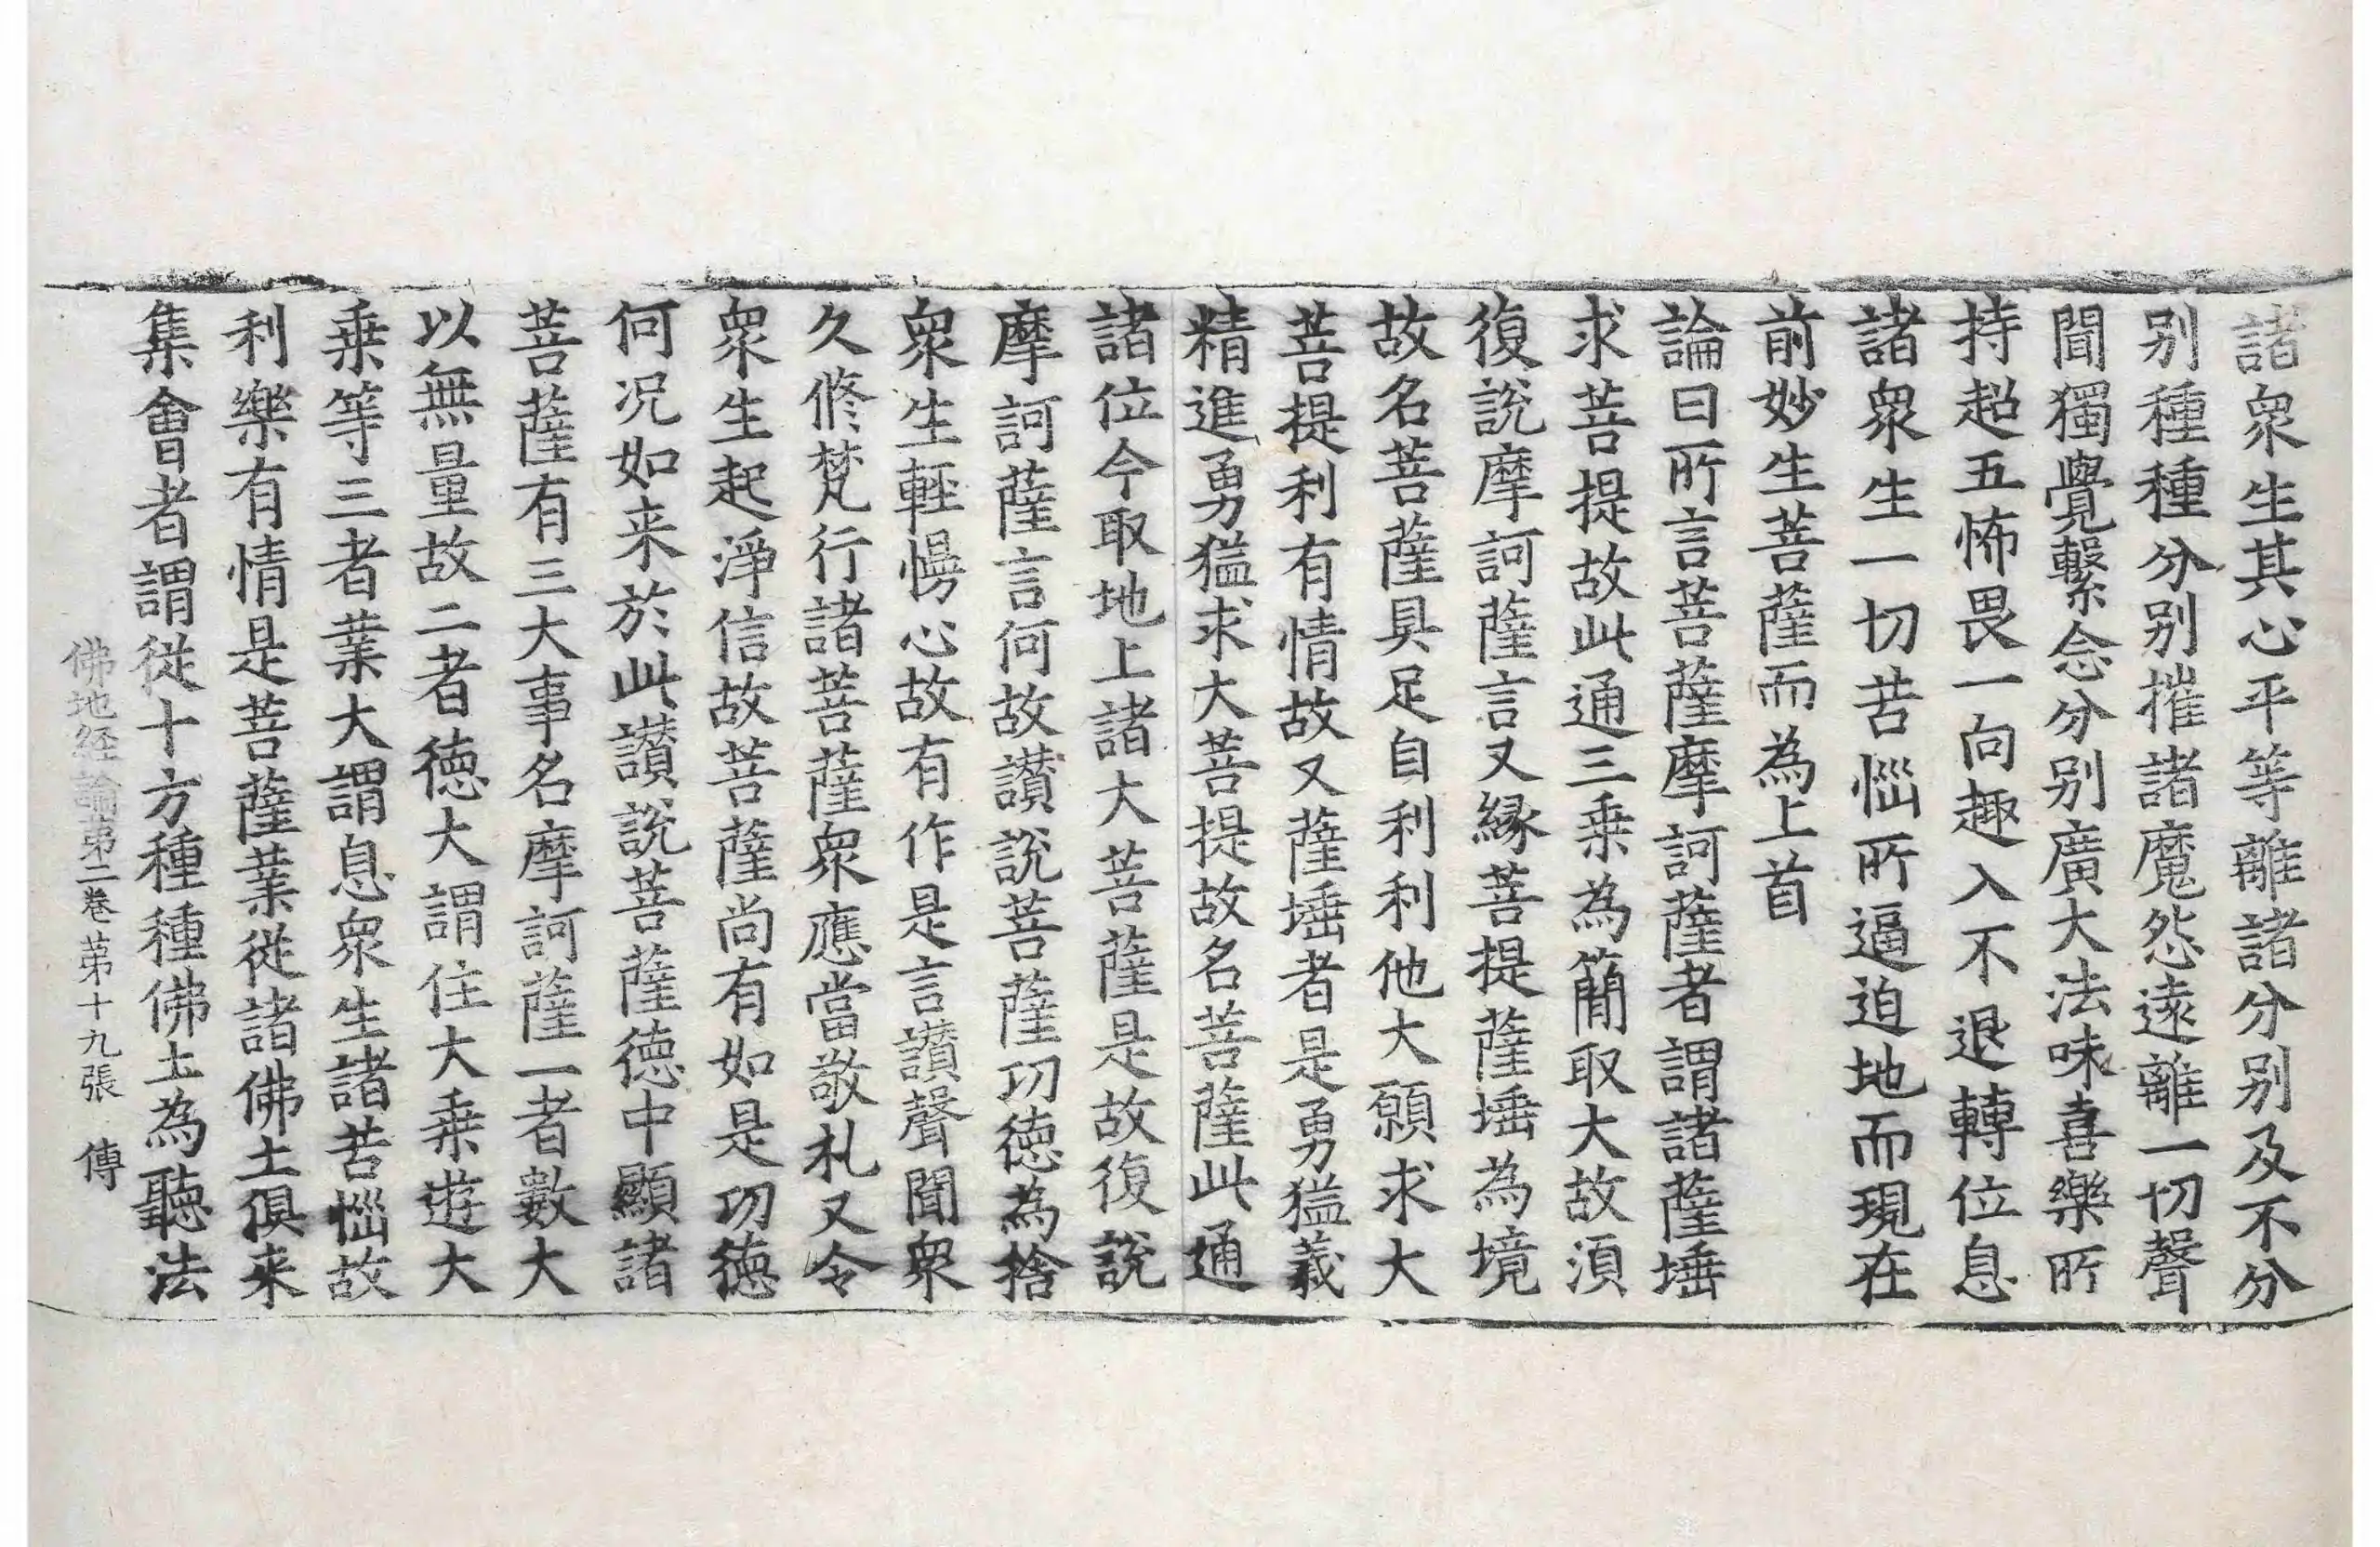 諸衆生其心平等離諸分别及不分
别種種分别摧諸魔怨遠離一切聲
聞獨覺繫念分别廣大法味喜樂所
持超五怖畏一向趣入不退轉位息
諸衆生一切苦惱所逼迫地而現在
前妙生菩薩而為上首
論曰所言菩薩摩訶薩者謂諸薩埵
求菩提故此通三乗為簡取大故湏
復說摩訶薩言又縁菩提薩埵為境
故名菩薩具足自利利他大願求大
菩提利有情故又薩埵者是勇猛義
精進勇猛求大菩提故名菩薩此通
諸位今取地上諸大菩薩是故復說
摩訶薩言何故讃說菩薩功徳為捨
衆生輕慢心故有作是言讃聲聞衆
久修梵行諸菩薩衆應當敬礼又令
衆生起淨信故菩薩尚有如是功徳
何况如来於此讃說菩薩徳中顯諸
菩薩有三大事名摩訶薩一者數大
以無量故二者徳大謂住大乗遊大
乗等三者業大謂息衆生諸苦惱故
利樂有情是菩薩業從諸佛土俱来
集會者謂從十方種種佛土為聽法
佛地経論苐二卷苐十九張 傳